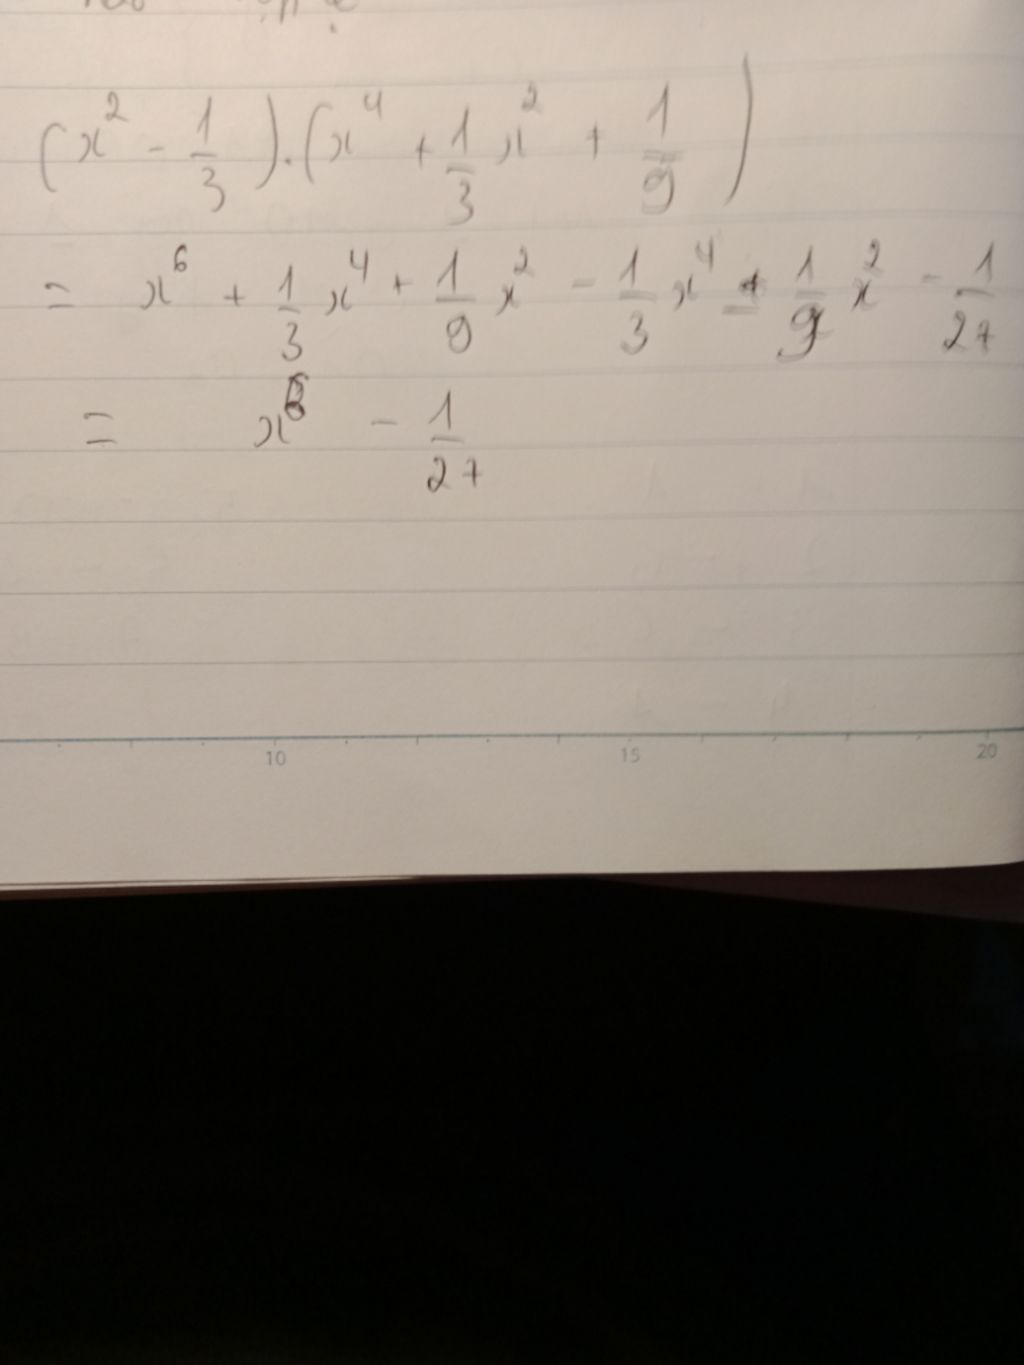 (x² - 1/3).(x⁴ + 1/3 x² + 1/9)
= x⁶ + 1/3 x⁴ + 1/9 x² - 1/3 x⁴ - 1/9 x² - 1/27
= x⁶ - 1/27
10 15 20